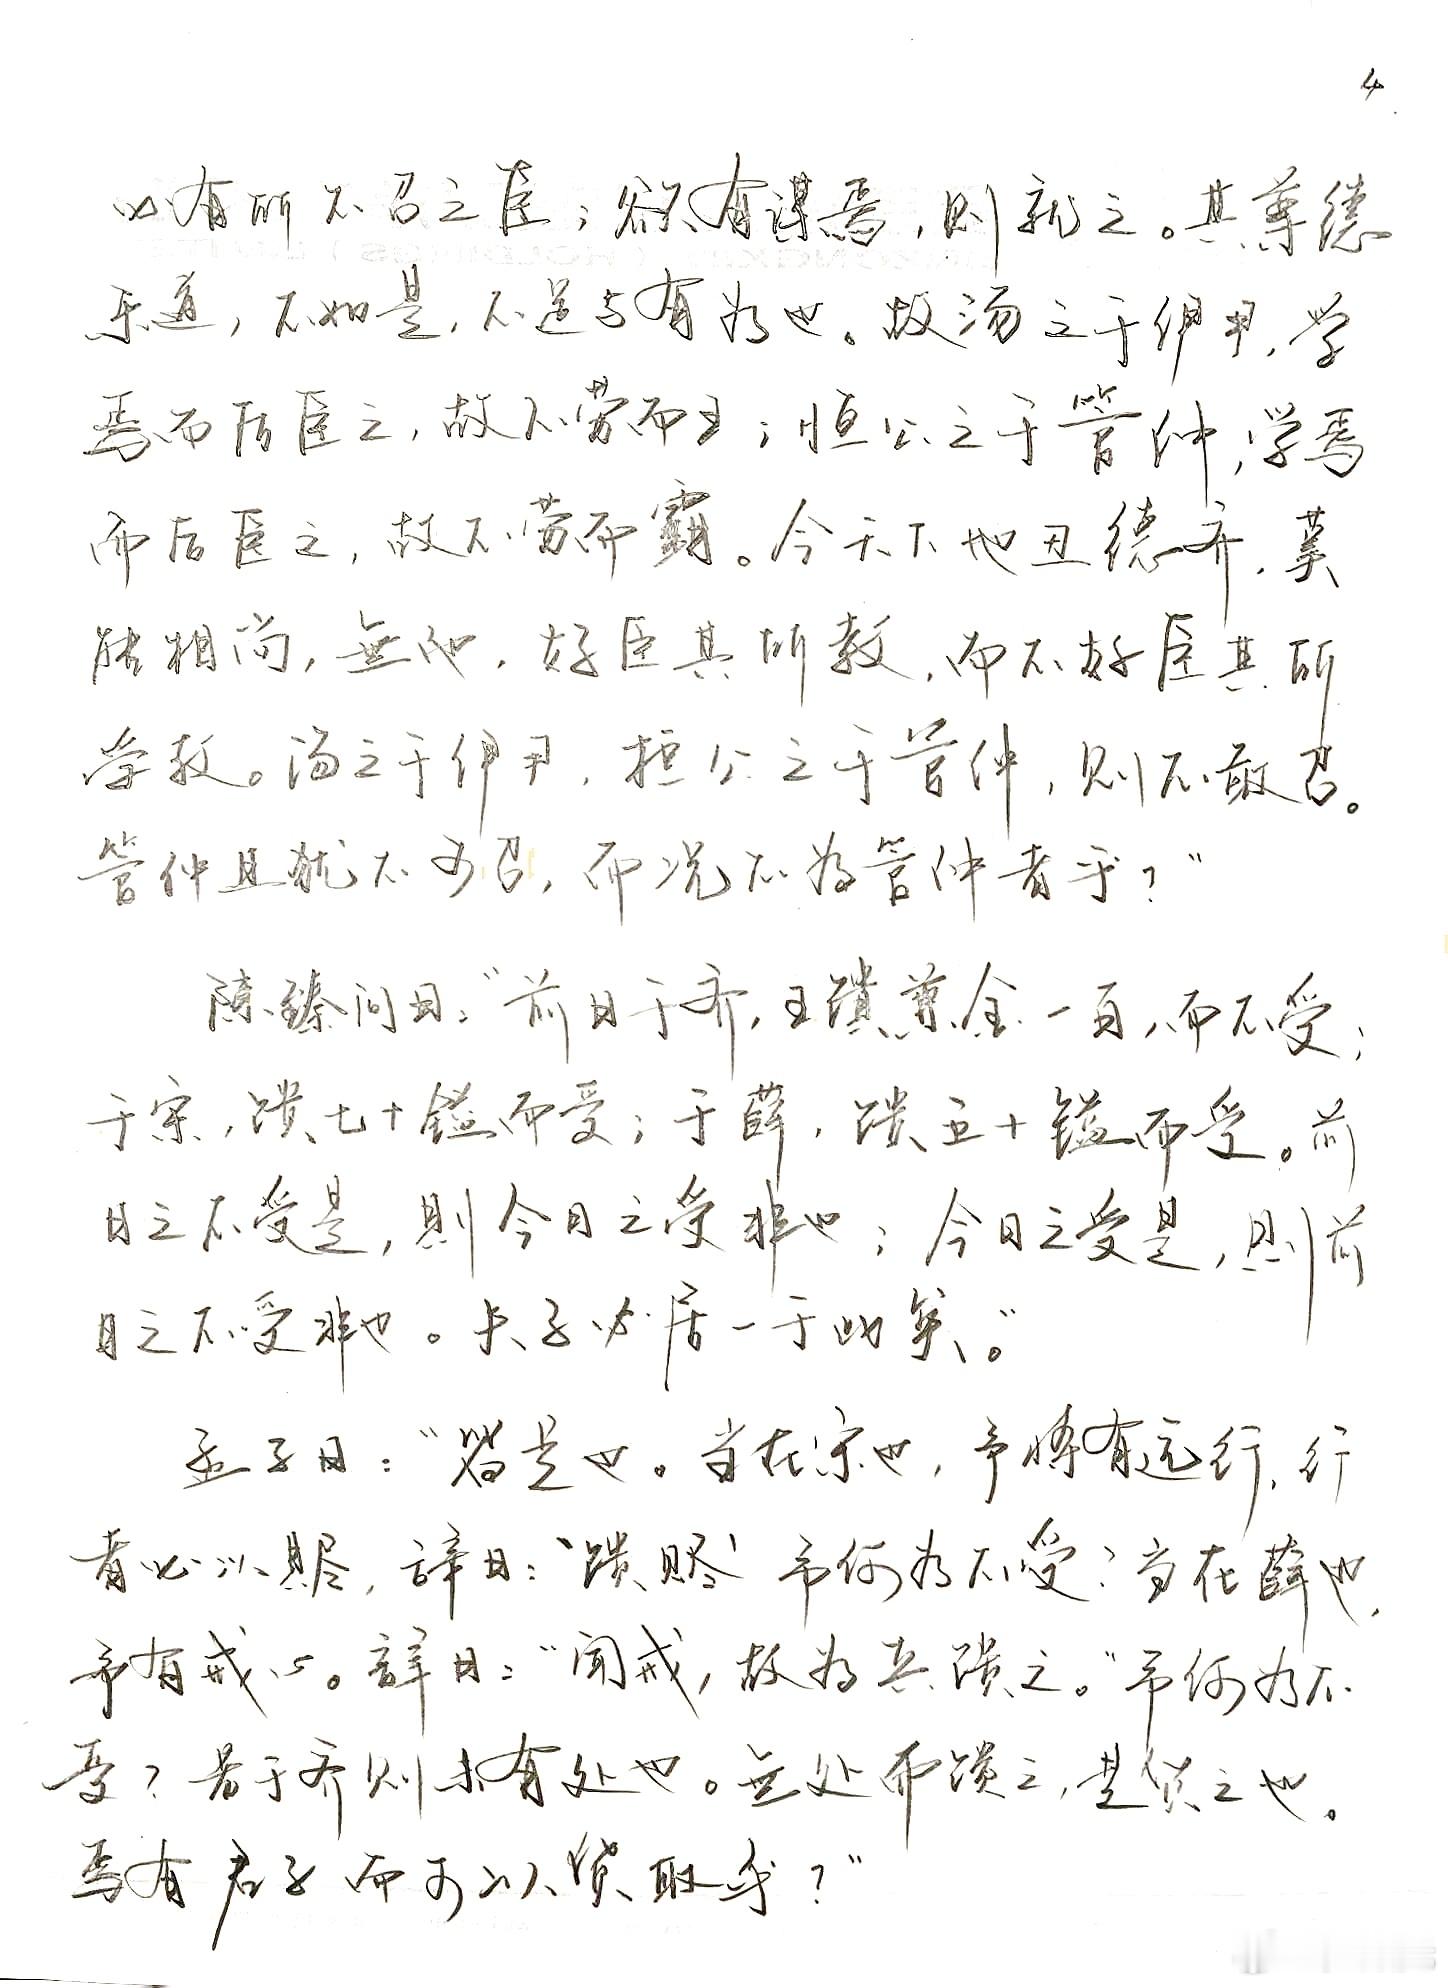 4
必有所不召之臣；欲有谋焉，则就之。其尊德
乐道，不如是，不足与有为也。故汤之于伊尹，学
焉而后臣之，故不劳而王；恒公之于管仲，学焉
而后臣之，故不劳而霸。今天下地丑德齐，莫
能相尚，無他，好臣其所教，而不好臣其所
学教。汤之于伊尹，桓公之于管仲，则不敢召。
管仲且犹不可召，而况不为管仲者乎？”
陈臻问曰：“前日于齐，王馈兼金一百，而不受；
于宋，馈七十镒而受；于薛，馈五十镒而受。前
日之不受是，则今日之受非也；今日之受是，则前
日之不受非也。夫子必居一于此矣。”
孟子曰：“皆是也。当在宋也，予将有远行，行
者必以赆，辞曰：‘馈赆’予何为不受？当在薛也，
予有戒心。辞曰：“闻戒，故为兵馈之。”予何为不
受？若于齐则未有处也。無处而馈之，是货之也。
焉有君子而可以货取乎？”